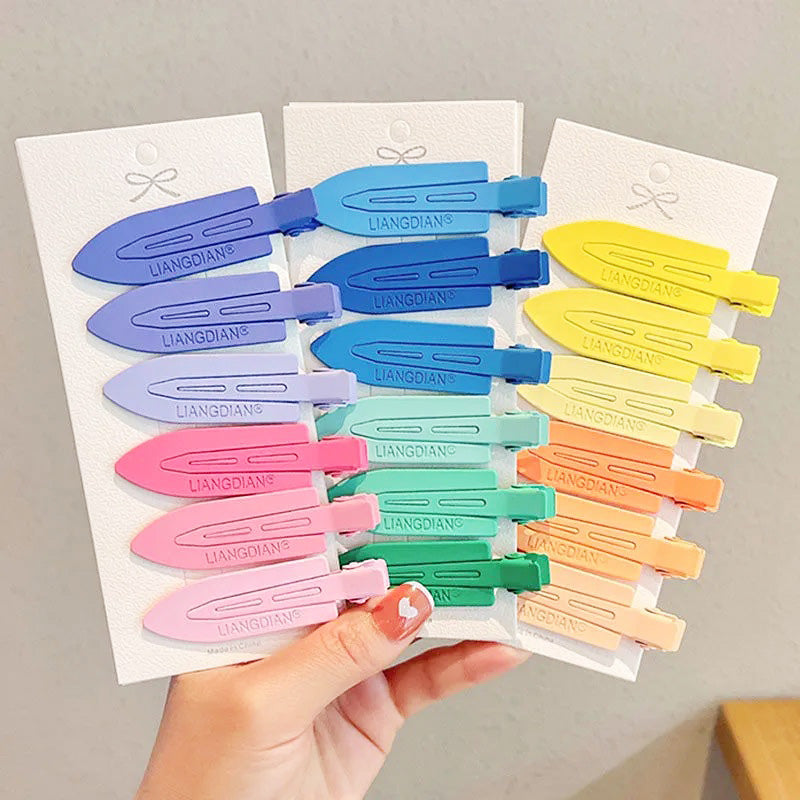 LIANGDIAN®
LIANGDIAN®
LIANGDIAN®
LIANGDIAN®
LIANGDIAN®
LIANGDIAN®
Made in China
LIANGDIAN®
LIANGDIAN®
LIANGDIAN®
LIANGDIAN®
LIANGDIAN®
LIANGDIAN®
LIANGDIAN®
LIANGDIAN®
LIANGDIAN®
LIANGDIAN®
LIANGDIAN®